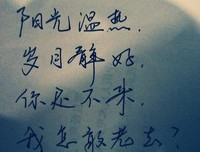 阳光温热,
岁月静好,
你还不来,
我怎敢老去?